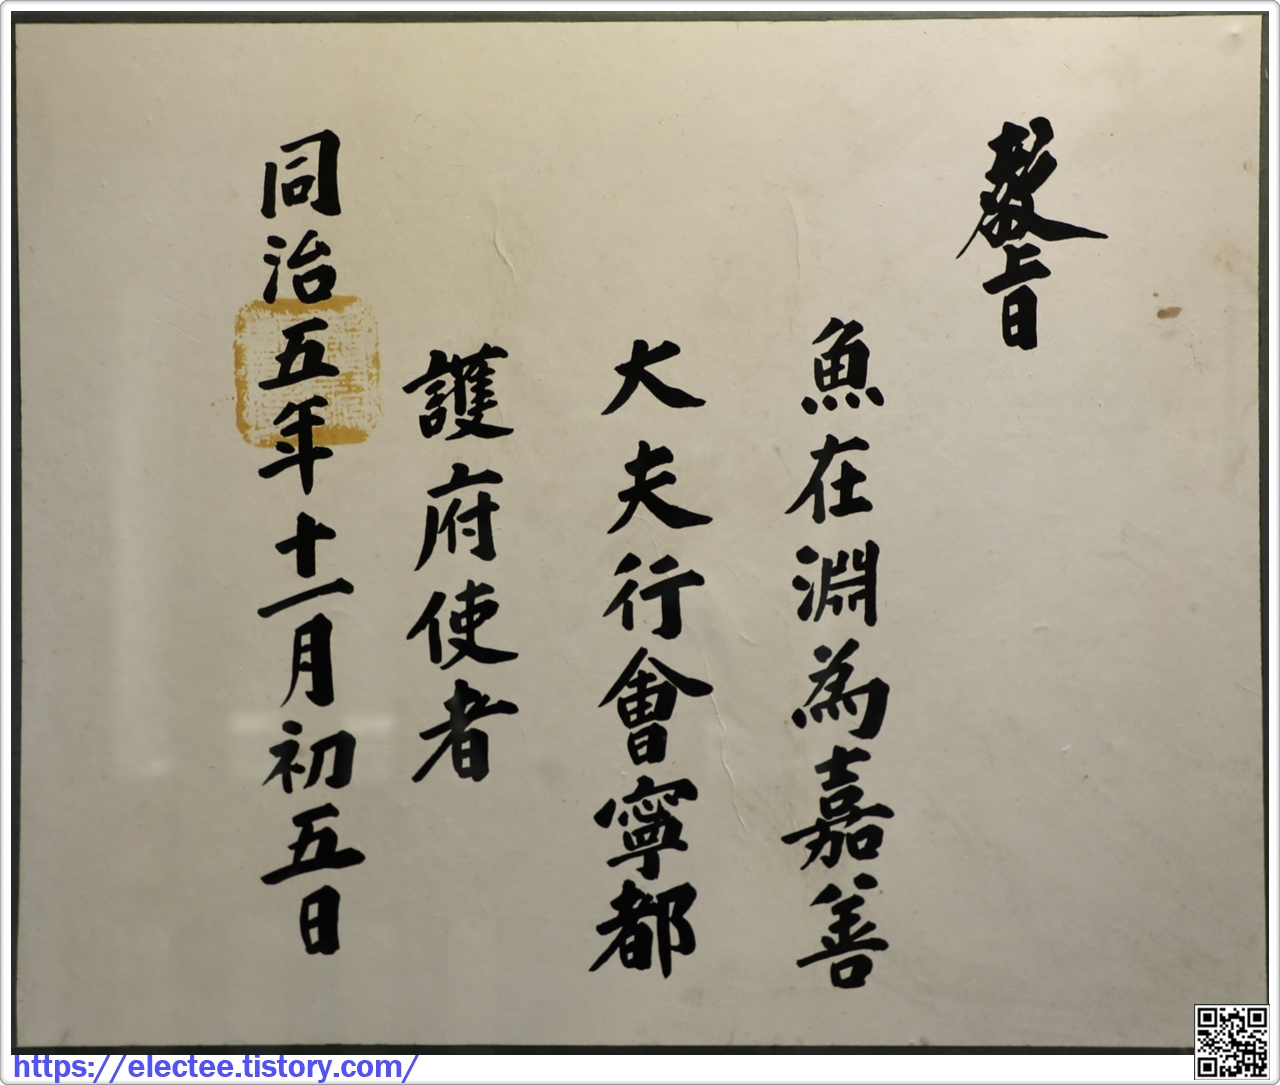 敎旨
魚在淵為嘉善
大夫行會寧都
護府使者
同治五年十一月初五日
https://electee.tistory.com/